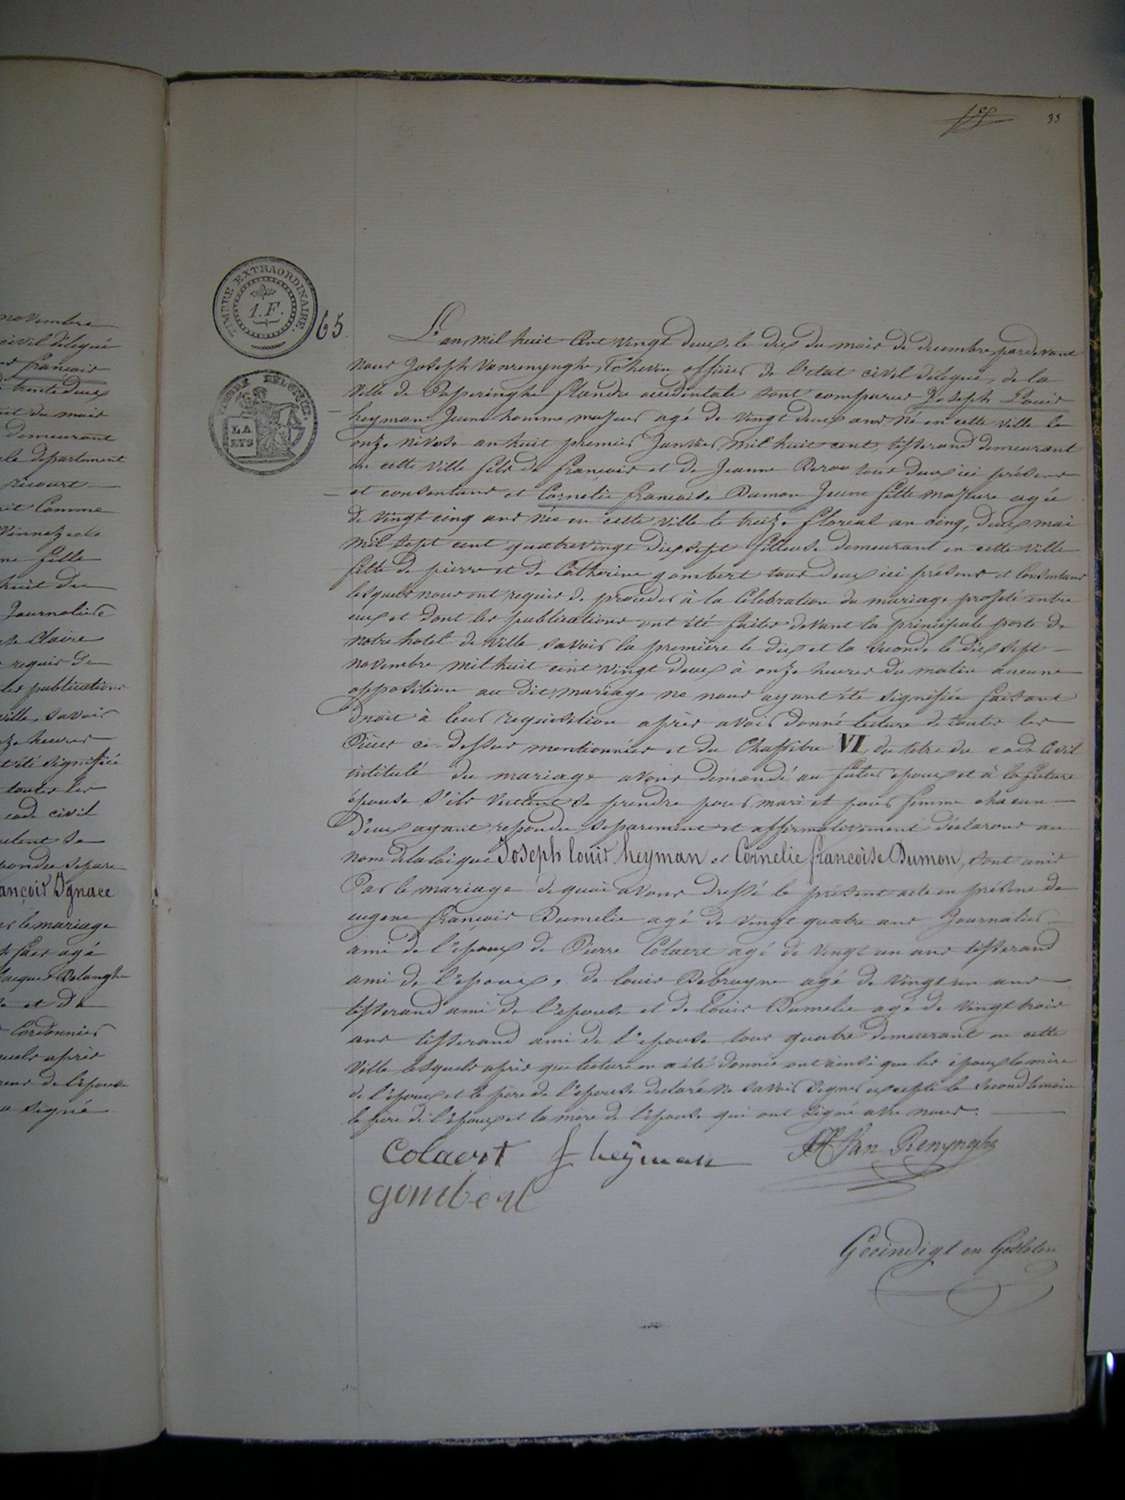 33
TIMBRE EXTRAORDINAIRE
1.F.
65.
LA
novembre
civil délégué
françois
trente deux
du mois
demeurant
département
comme
fille
huit de
Journalier
Claire
requis de
les publications
ville, savoir
heures
été signifiée
toutes les
code civil
veulent se
répondu sépare
ançois Ignace
le mariage
agé
Jacques Delanghe
et de
Cordonnier
après
de l'épouse
signé
L'an mil huit cent vingt deux, le dix du mois de decembre pardevant
nous Joseph Vanrenynghe, Echevin officier de l'etat civil délégué, de la
ville de Poperinghe flandre occidentale sont comparus Joseph Louis
heyman Jeune homme majeur agé de vingt deux ans né en cette ville le
onze nivose an huit premier Janvier mil huit cent, tisserand demeurant
en cette ville fils de françois et de Jeanne tous deux ici présens
et consentans et Cornélie françoise Dumon Jeune fille majeure agée
de vingt cinq ans née en cette ville le treize floreal an cinq, deux mai
mil sept cent quatrevingt dix sept fileuse demeurant en cette ville
fille de pierre et de Catherine gombert tous deux ici présens et consentans
lesquels nous ont requis de procéder à la célébration du mariage projeté entre
eux et dont les publications ont été faites devant la principale porte de
notre hotel de ville savoir la première le dix et la seconde le dix sept
novembre mil huit cent vingt deux à onze heures du matin aucune
opposition au dit mariage ne nous ayant été signifiée faisant
droit à leur requisition après avoir donné lecture de toutes les
pièces ci-dessus mentionnées et du Chapitre VI, du titre du code Civil
intitulé du mariage avons demandé au futur epoux et à la future
épouse s'ils veulent se prendre pour mari et pour femme chacun
d'eux ayant repondu séparement et affirmativement déclarons au
nom de la loi que Joseph louis heyman et Cornélie françoise Dumon, sont unis
Par le mariage de quoi avons dressé le présent acte en présence de
eugene françois Dumelie agé de vingt quatre ans Journalier
ami de l'epoux de Pierre Colaert agé de vingt un ans tisserand
ami de l'epoux, de louis Debruyne agé de vingt un ans
tisserand ami de l'epouse et de Louis Dumelie agé de vingt trois
ans tisserand ami de l'epouse tous quatre demeurant en cette
ville lesquels après que lecture en a été donnée ont ainsi que les époux la mère
de l'époux et le père de l'épouse declaré ne savoir signer excepté le second témoin
le père de l'époux et la mère de l'épouse qui ont signé avec nous.
Colaert f heyman Van Renynghe
gombert
Geeindigt en Gesloten